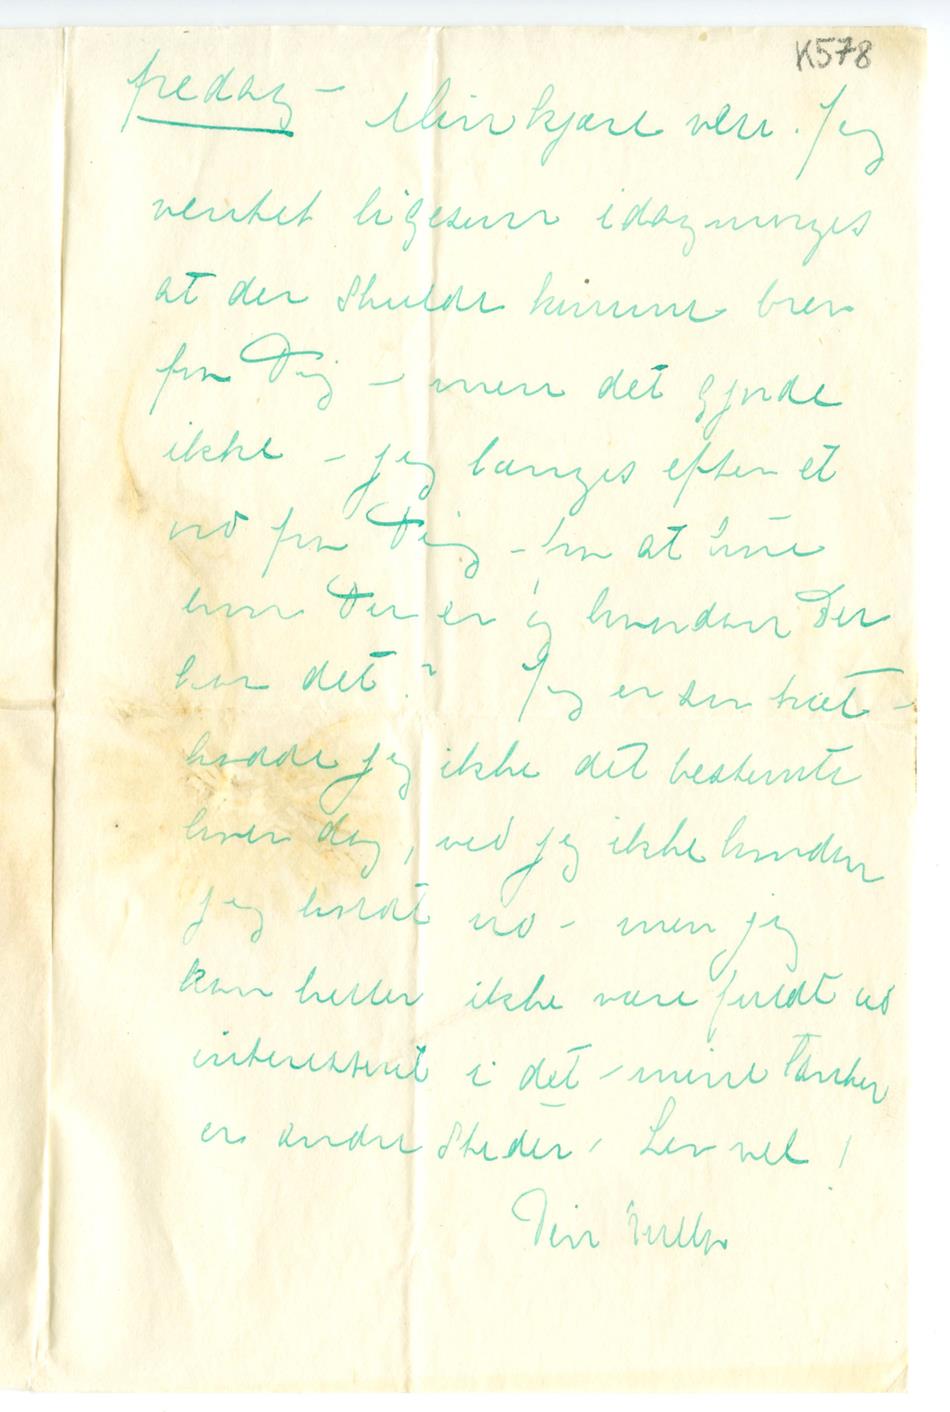 K578
fredag – Min kjære ven. Jeg
ventet ligesom idagmorges
at der skulde komme brev
fra Dig – men det gjorde
ikke – jeg længes efter et
ord fra Dig – for at høre
hvor Du er og hvordan Du
har det? Jeg er saa træt –
hadde jeg ikke det bestemte
hver dag, ved jeg ikke hvordan
jeg holdt ud – men jeg
kan heller ikke være fuldt ud
interessert i det – mine tanker
er andre steder. Lev vel!
Din